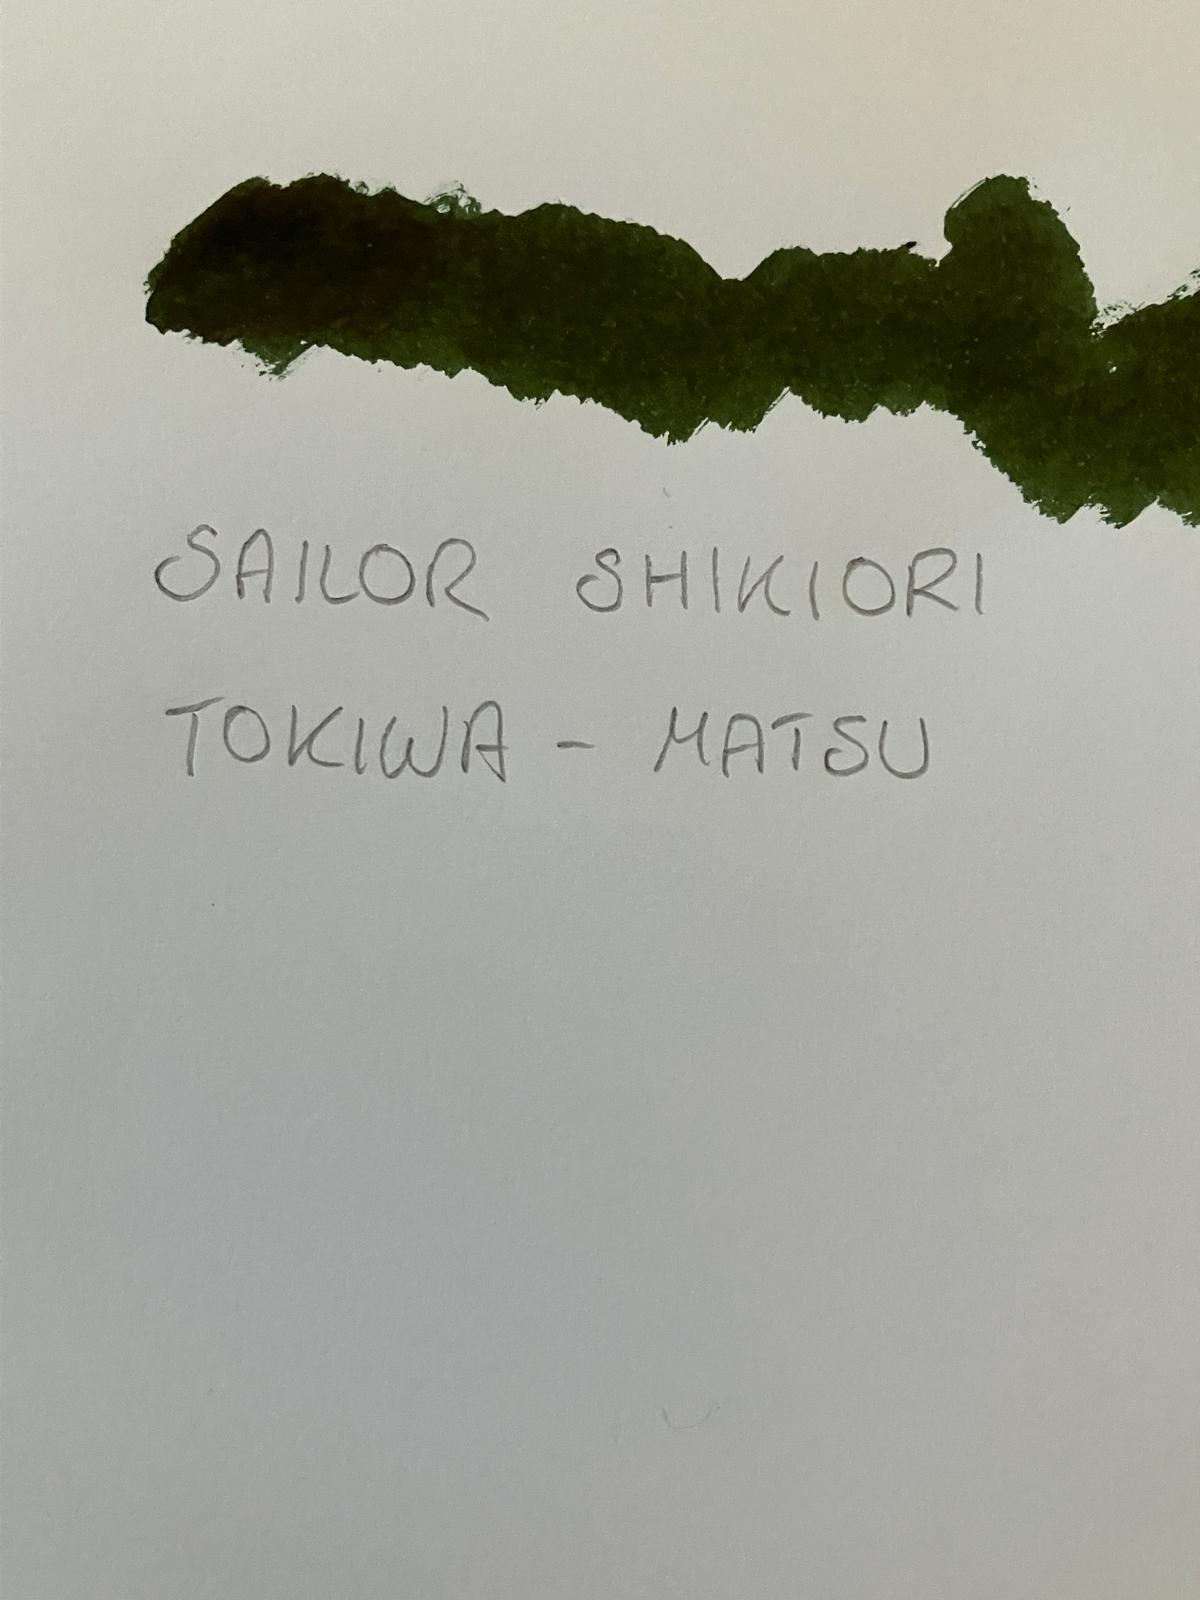 SAILOR SHIKIORI
TOKIWA - MATSU